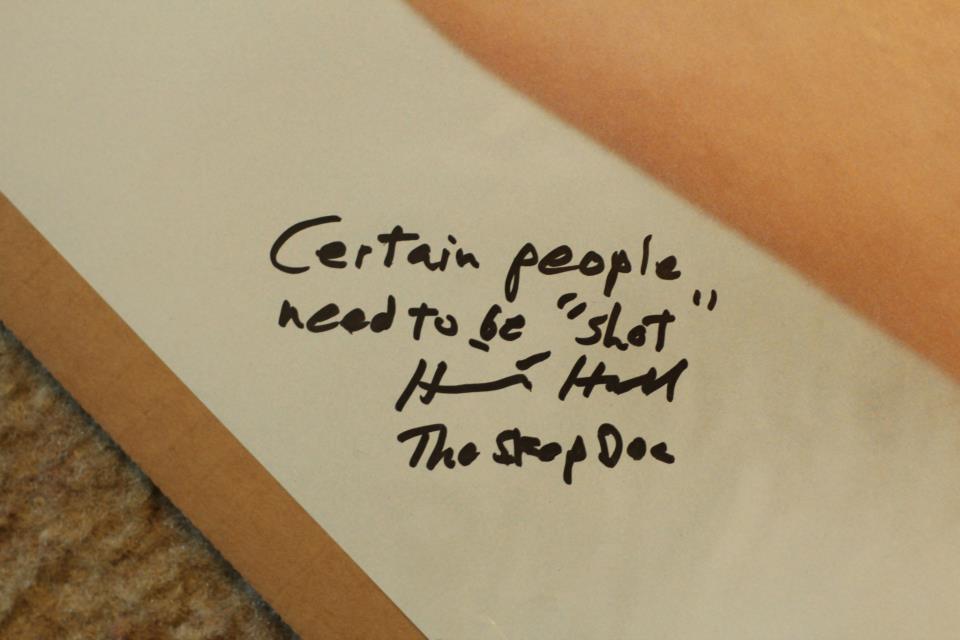 Certain people
need to be "shot"
Hall
The SkepDoc